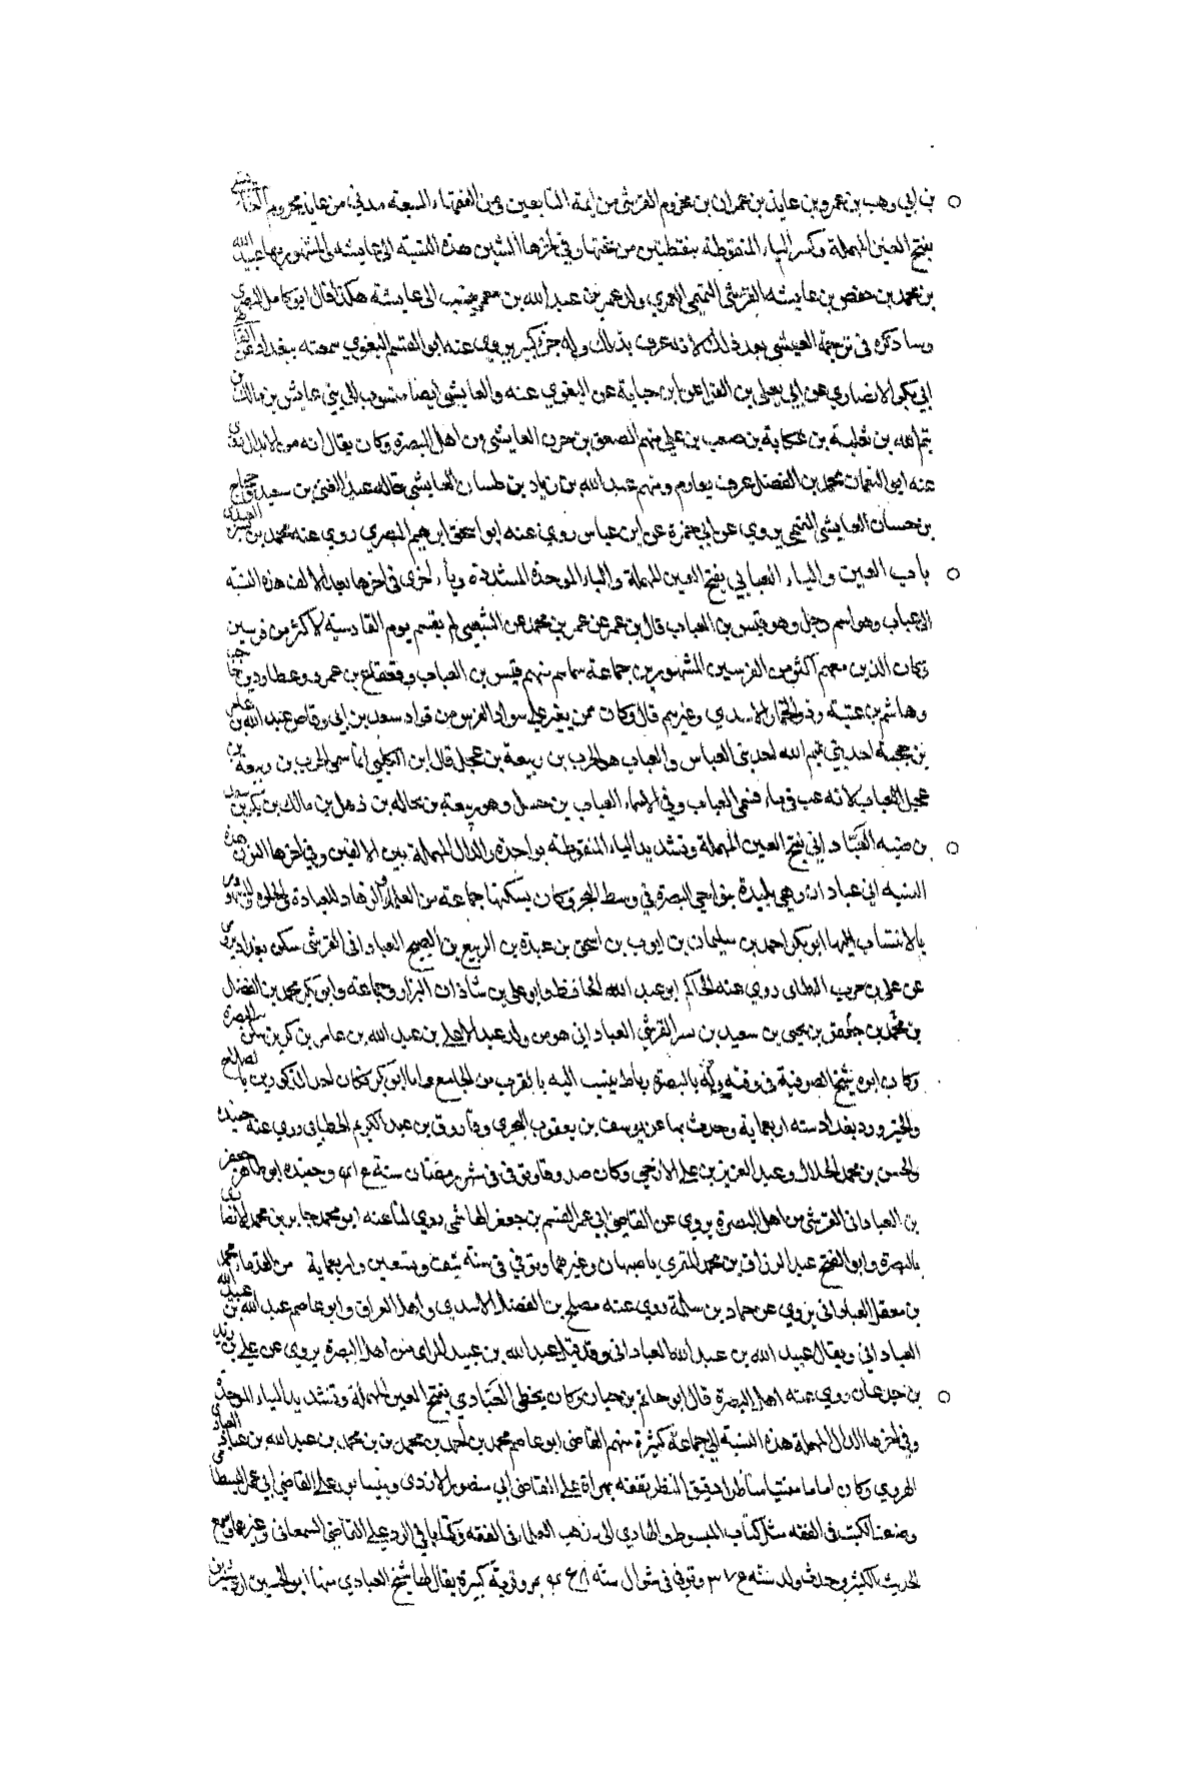 بن ابي وهب بن عمرو بن عايذ بن عمران بن مخزوم القرشي من ايمة التابعين ومن الفقهاء السبعة مدني من عايذ مخزوم العائشي
بفتح العين المهملة وكسر الياء المنقوطة بنقطتين من تحتها وفي اخرها الشين هذه النسبة الى عايشه المشهور بها عبيد الله
بن محمد بن حفص بن عايشه القرشي التيمي من ولد عمر بن عبد الله بن معمر ينسب الى عايشة هكذا قال ابو كامل البصري
وساذكره في ترجمة العيشي بعد ذلك لانه عرف بذلك وله جزء كبير يرويه عنه ابو القسم البغوي سمعته ببغداد عن القاضي
ابي بكر الانصاري عن ابي يعلى بن الفرا عن ابن حبابة عن البغوي عنه والعايشي ايضا منسوب الى بني عايش بن مالك بن
تيم الله بن ثعلبة بن عكابة بن صعب بن علي منهم الصعق بن حزن العايشي من اهل البصرة وكان يقال انه من الابدال روى
عنه ابو النعمان محمد بن الفضل عرف بعارم ومنهم عبد الله بن زياد بن ظبيان العايشي قاله عبد الغني بن سعيد وحجاج
بن حسان العايشي التيمي يروي عن ابي جمرة عن ابن عباس روي عنه ابو اسحق ابرهيم البصري روي عنه محمد بن بشر العبدي
باب العين والباء العبابي بفتح العين المهملة والباء الموحدة المشددة وباء اخرى في اخرها بعد الالف هذه النسبة
الى عباب وهو اسم رجل وهو قيس بن العباب قال بن عمر عن عمر بن محمد عن الشعبي لم يقسم يوم القادسية لاكثر من فرسين
وكان الذين معهم اكثر من الفرسين المشهورين جماعة سماهم منهم قيس بن العباب وقعقاع بن عمرو وعطارد بن حاجب
وهاشم بن عتبة وذو الخمار الاسدي وغيرهم قال وكان ممن يغير على سواد الفرس من قواد سعد بن ابي وقاص عبد الله بن عامر
بن حجبة احد بني تيم الله احد بني العباس والعباب هو الحرب بن ربيعة بن عجل قال ابن الكلبي انما سمي الحرب بن ربيعة بن
عجل العباب لانه عب في ماء فسمي العباب وفي الاسماء العباب بن حسل وهو ربيعة بن بن ذهل بن مالك بن بكر بن سعد
بن ضبه العَبّاداني بفتح العين المهملة وتشديد الباء المنقوطة بواحدة والدال المهملة بين الالفين وفي اخرها النون هذه
النسبه الى عبادان وهي بليدة بنواحي البصرة في وسط البحر وكان يسكنها جماعة من العلماء والزهاد للعبادة والخلوة والمشهور
بالانتساب اليها ابو بكر احمد بن سليمان بن ايوب بن اسحق بن عبدة بن الربيع بن صبيح العباداني القرشي سكن بغداد يروي
عن علي بن حرب الطائى روي عنه الحاكم ابو عبد الله الحافظ وابو علي بن شاذان البزار وجماعة وابو بكر محمد بن الفضل
بن محمد بن جعفر بن يحيى بن سعيد بن بسر القرشي العباداني هو من ولد عبد الاعلى بن عبد الله بن عامر بن كريز سكن البصرة
وكان ابوه شيخ الصوفية في وقته وله بالبصرة رباط ينسب اليه بالقرب من الجامع واما ابو بكر فكان احد المذكورين بالصلاح
والخير ورد بغداد سنه اربعماية وحدث بها عن يوسف بن يعقوب النجيرمي وفاروق بن عبد الكريم الخطابي روي عنه
والحسن بن محمد الخلال وعبد العزيز بن علي الازجي وكان صدوقا وتوفي في شهر رمضان سنة ٤١ وحفيده ابو طاهر جعفر
بن العباداني القرشي من اهل البصرة يروي عن القاضي ابي عمر القسم بن جعفر الهاشمي روي لنا عنه ابو محمد جابر بن محمد الانصاري
بالبصرة وابو الفتح عبد الرزاق بن محمد المقري باصبهان وغيرهما وتوفي في سنة نيف وتسعين واربعماية من القدماء محمد
بن معقل العباداني يروي عن حماد بن سلمة روي عنه مصلح بن الفضل الاسدي واهل العراق وابو عاصم عبد الله بن عبيد الله
العباداني ويقال عبيد الله بن عبد الله العباداني وقد قيل عبد الله بن عبيد المراي من اهل البصرة يروي عن علي بن زيد
بن جدعان روي عنه اهل البصرة قال ابو حاتم بن حبان وكان يخطي العَبّادي بفتح العين المهملة وتشديد الباء الموحدة
وفي اخرها الدال المهملة هذه النسبة الى جماعة كثيرة منهم القاضي ابو عاصم محمد بن احمد بن محمد بن محمد بن عبد الله بن عباد العبادي
الهروي وكان اماما مفتيا مناظرا دقيق النظر تفقه بهراة على القاضي ابي منصور الازدي وبنيسابور على القاضي ابي عمر البسطامي
وصنف الكتب في الفقه مثل كتاب المبسوط والهادي الى مذهب العلماء في الفقه وكتابا في الرد على القاضي السمعاني وغيرها وسمع
الحديث الكثير وحدث ولد سنه ٣٧ وتوفي في شوال سنه ٤ بمرو قرية كبيرة يقال لها شنج العبادي منها ابو الحسين ازدشير بن